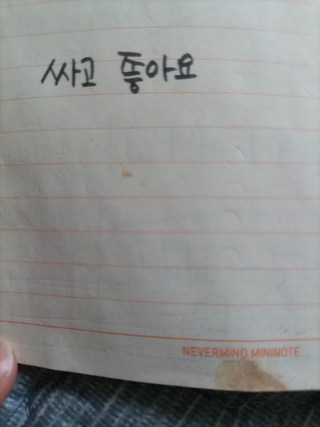 싸고 좋아요
NEVERMIND MININOTE